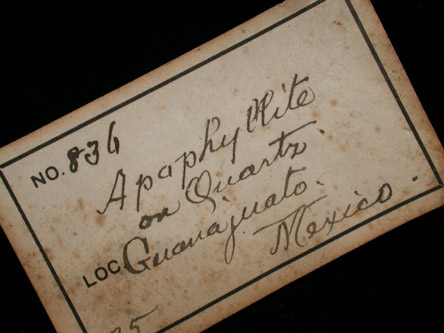 NO. 836
Apaphyllite
on Quartz.
LOC Guanajuato.
Mexico.